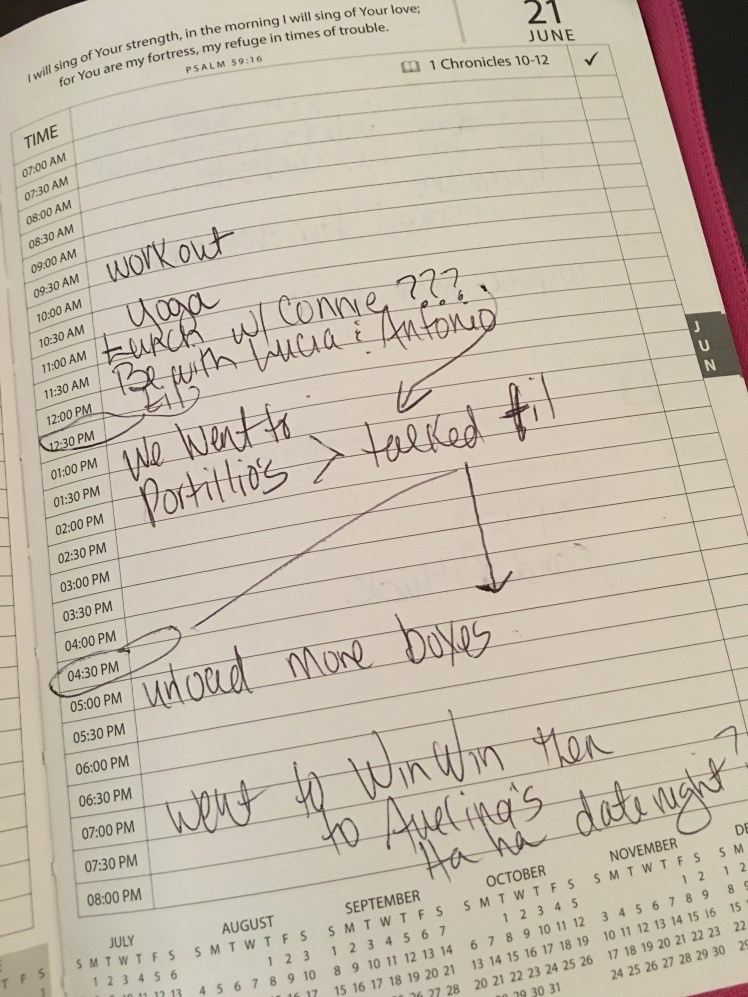 I will sing of Your strength, in the morning I will sing of Your love;
for You are my fortress, my refuge in times of trouble.
PSALM 59:16
21
JUNE
1 Chronicles 10-12 ✓
TIME
07:00 AM
07:30 AM
08:00 AM
08:30 AM
09:00 AM workout
09:30 AM
10:00 AM yoga
10:30 AM Lunch w/ Connie ???
11:00 AM Be with Lucia & Antonio
11:30 AM till
12:00 PM
12:30 PM We Went to > talked til
01:00 PM Portillio's
01:30 PM
02:00 PM
02:30 PM
03:00 PM
03:30 PM
04:00 PM
04:30 PM unload more boxes
05:00 PM
05:30 PM
06:00 PM
06:30 PM went to WinWin then
07:00 PM to Avelina's
07:30 PM Ha ha date night?
08:00 PM
JUN
JULY
S M T W T F S
1 2 3 4 5 6
AUGUST
S M T W T F S
1 2 3
4 5 6 7 8 9 10
SEPTEMBER
S M T W T F S
1 2 3 4 5 6 7
8 9 10 11 12 13 14
15 16 17 18 19 20 21
OCTOBER
S M T W T F S
1 2 3 4 5
6 7 8 9 10 11 12
13 14 15 16 17 18 19
20 21 22 23 24 25 26
29 30 31
NOVEMBER
S M T W T F S
1 2
3 4 5 6 7 8 9
10 11 12 13 14 15 16
17 18 19 20 21 22 23
24 25 26 27 28 29 30